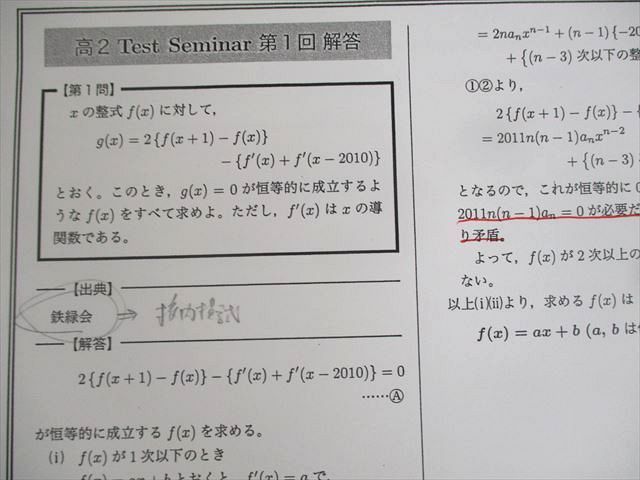 高2 Test Seminar 第1回 解答
【第1問】
xの整式 f(x) に対して,
g(x) = 2{f(x+1) − f(x)}
− {f′(x) + f′(x − 2010)}
とおく。このとき, g(x) = 0 が恒等的に成立するよ
うな f(x) をすべて求めよ。ただし, f′(x) は x の導
関数である。
【出典】
鉄緑会 ⇒ 校内模試
【解答】
2{f(x+1) − f(x)} − {f′(x) + f′(x − 2010)} = 0
……Ⓐ
が恒等的に成立する f(x) を求める。
(i) f(x) が1次以下のとき
f(x) = ax + b とおくと, f′(x) = a で,
= 2na_n x^{n−1} + (n − 1){−20
+ {(n − 3) 次以下の整
①②より,
2{f(x+1) − f(x)} − {
= 2011n(n − 1)a_n x^{n−2}
+ {(n − 3)
となるので, これが恒等的に 0
2011n(n − 1)a_n = 0 が必要だ
り矛盾。
よって, f(x) が2次以上の
ない。
以上(i)(ii)より, 求める f(x) は
f(x) = ax + b (a, b は